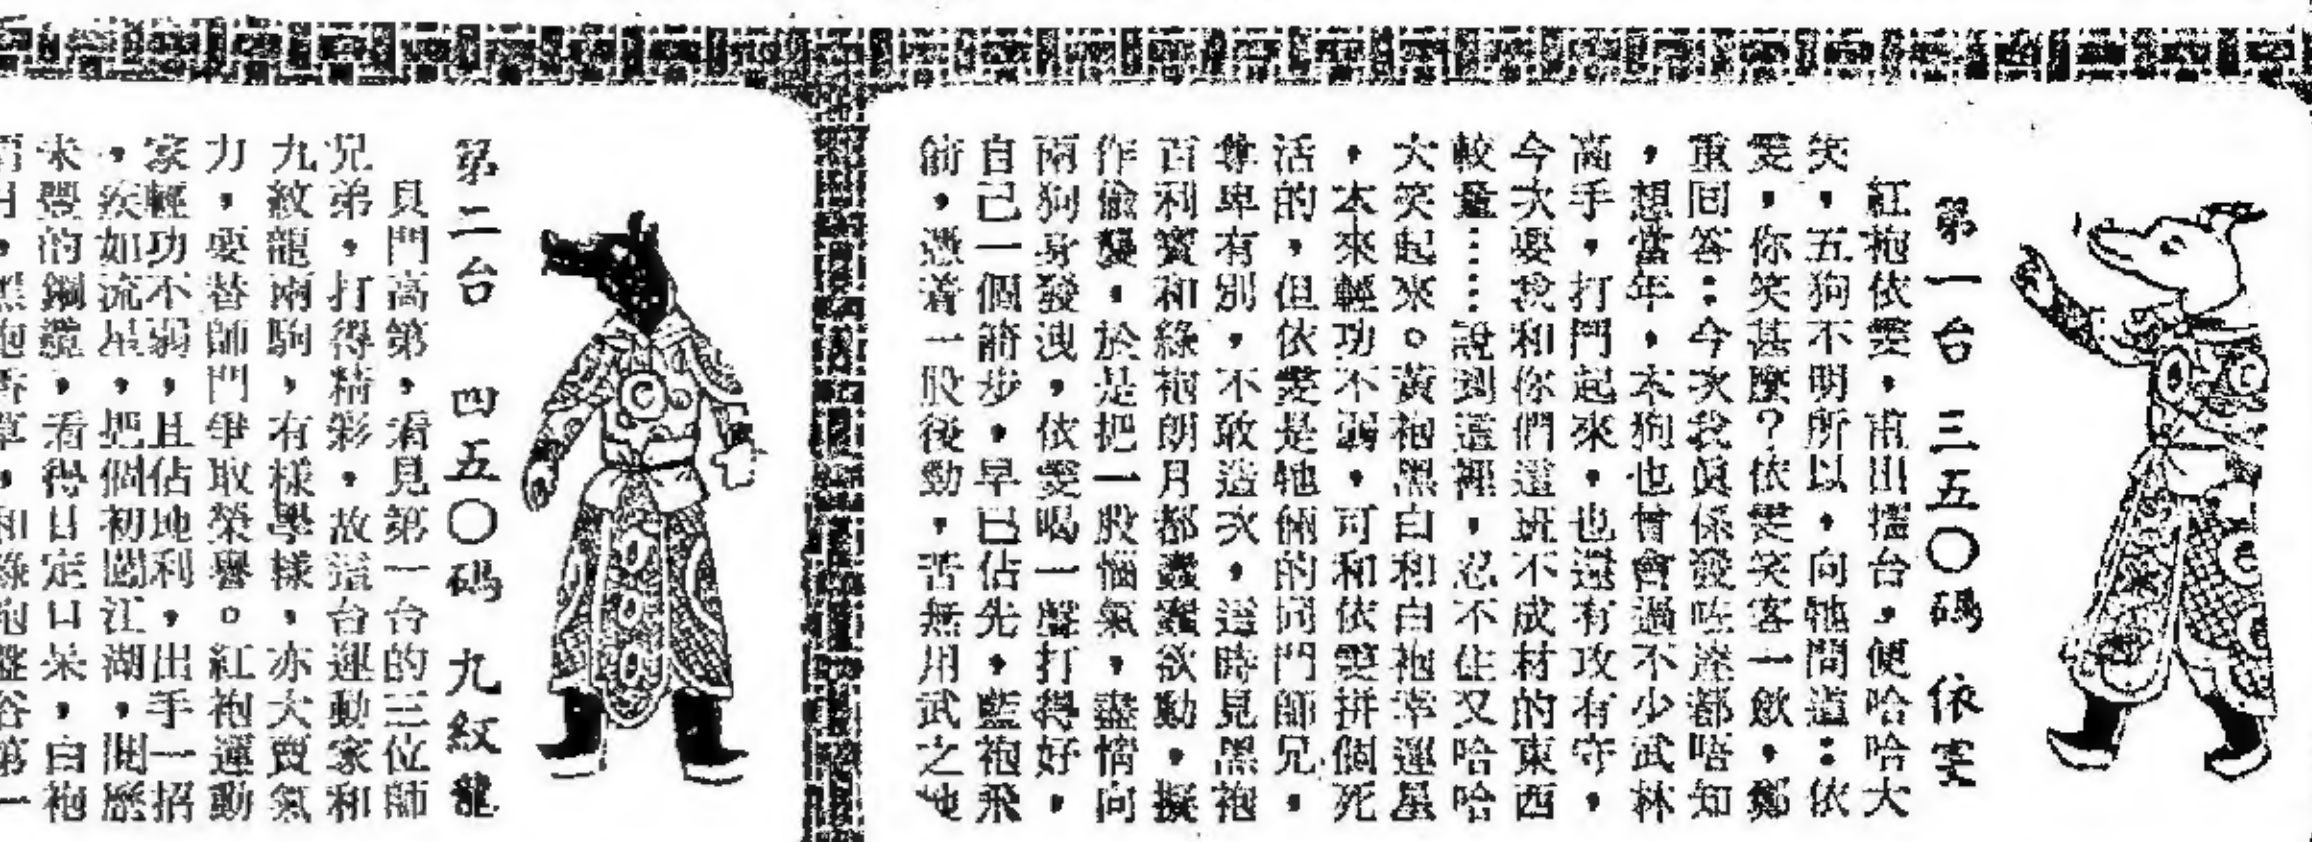 第一台 三五〇碼 依雯
紅袍依雯，甫出擂台，便哈哈大
笑，五狗不明所以，向牠問道：依
雯，你笑甚麼？依雯笑容一歛，鄭
重回答：今次我眞係發咗達都唔知
，想當年，本狗也曾會過不少武林
高手，打鬥起來，也還有攻有守，
今次要我和你們這班不成材的東西
較量……說到這裡，忍不住又哈哈
大笑起來。黃袍黑白和白袍幸運星
，本來輕功不弱，可和依雯拼個死
活的，但依雯是牠倆的同門師兄，
尊卑有別，不敢造次，這時見黑袍
百利寶和綠袍朗月都蠢蠢欲動，擬
作偷襲，於是把一股惱氣，盡情向
兩狗身發洩，依雯喝一聲打得好，
自己一個箭步，早已佔先，藍袍飛
箭，憑着一股後勁，苦無用武之地
第二台 四五〇碼 九紋龍
貝門高第，看見第一台的三位師
兄弟，打得精彩，故這台運動家和
九紋龍兩駒，有樣學樣，亦大賣氣
力，要替師門爭取榮譽。紅袍運動
家輕功不弱，且佔地利，出手一招
，疾如流星，，把個初闖江湖，閱歷
未豐的鋼鑽，看得目定口呆，白袍